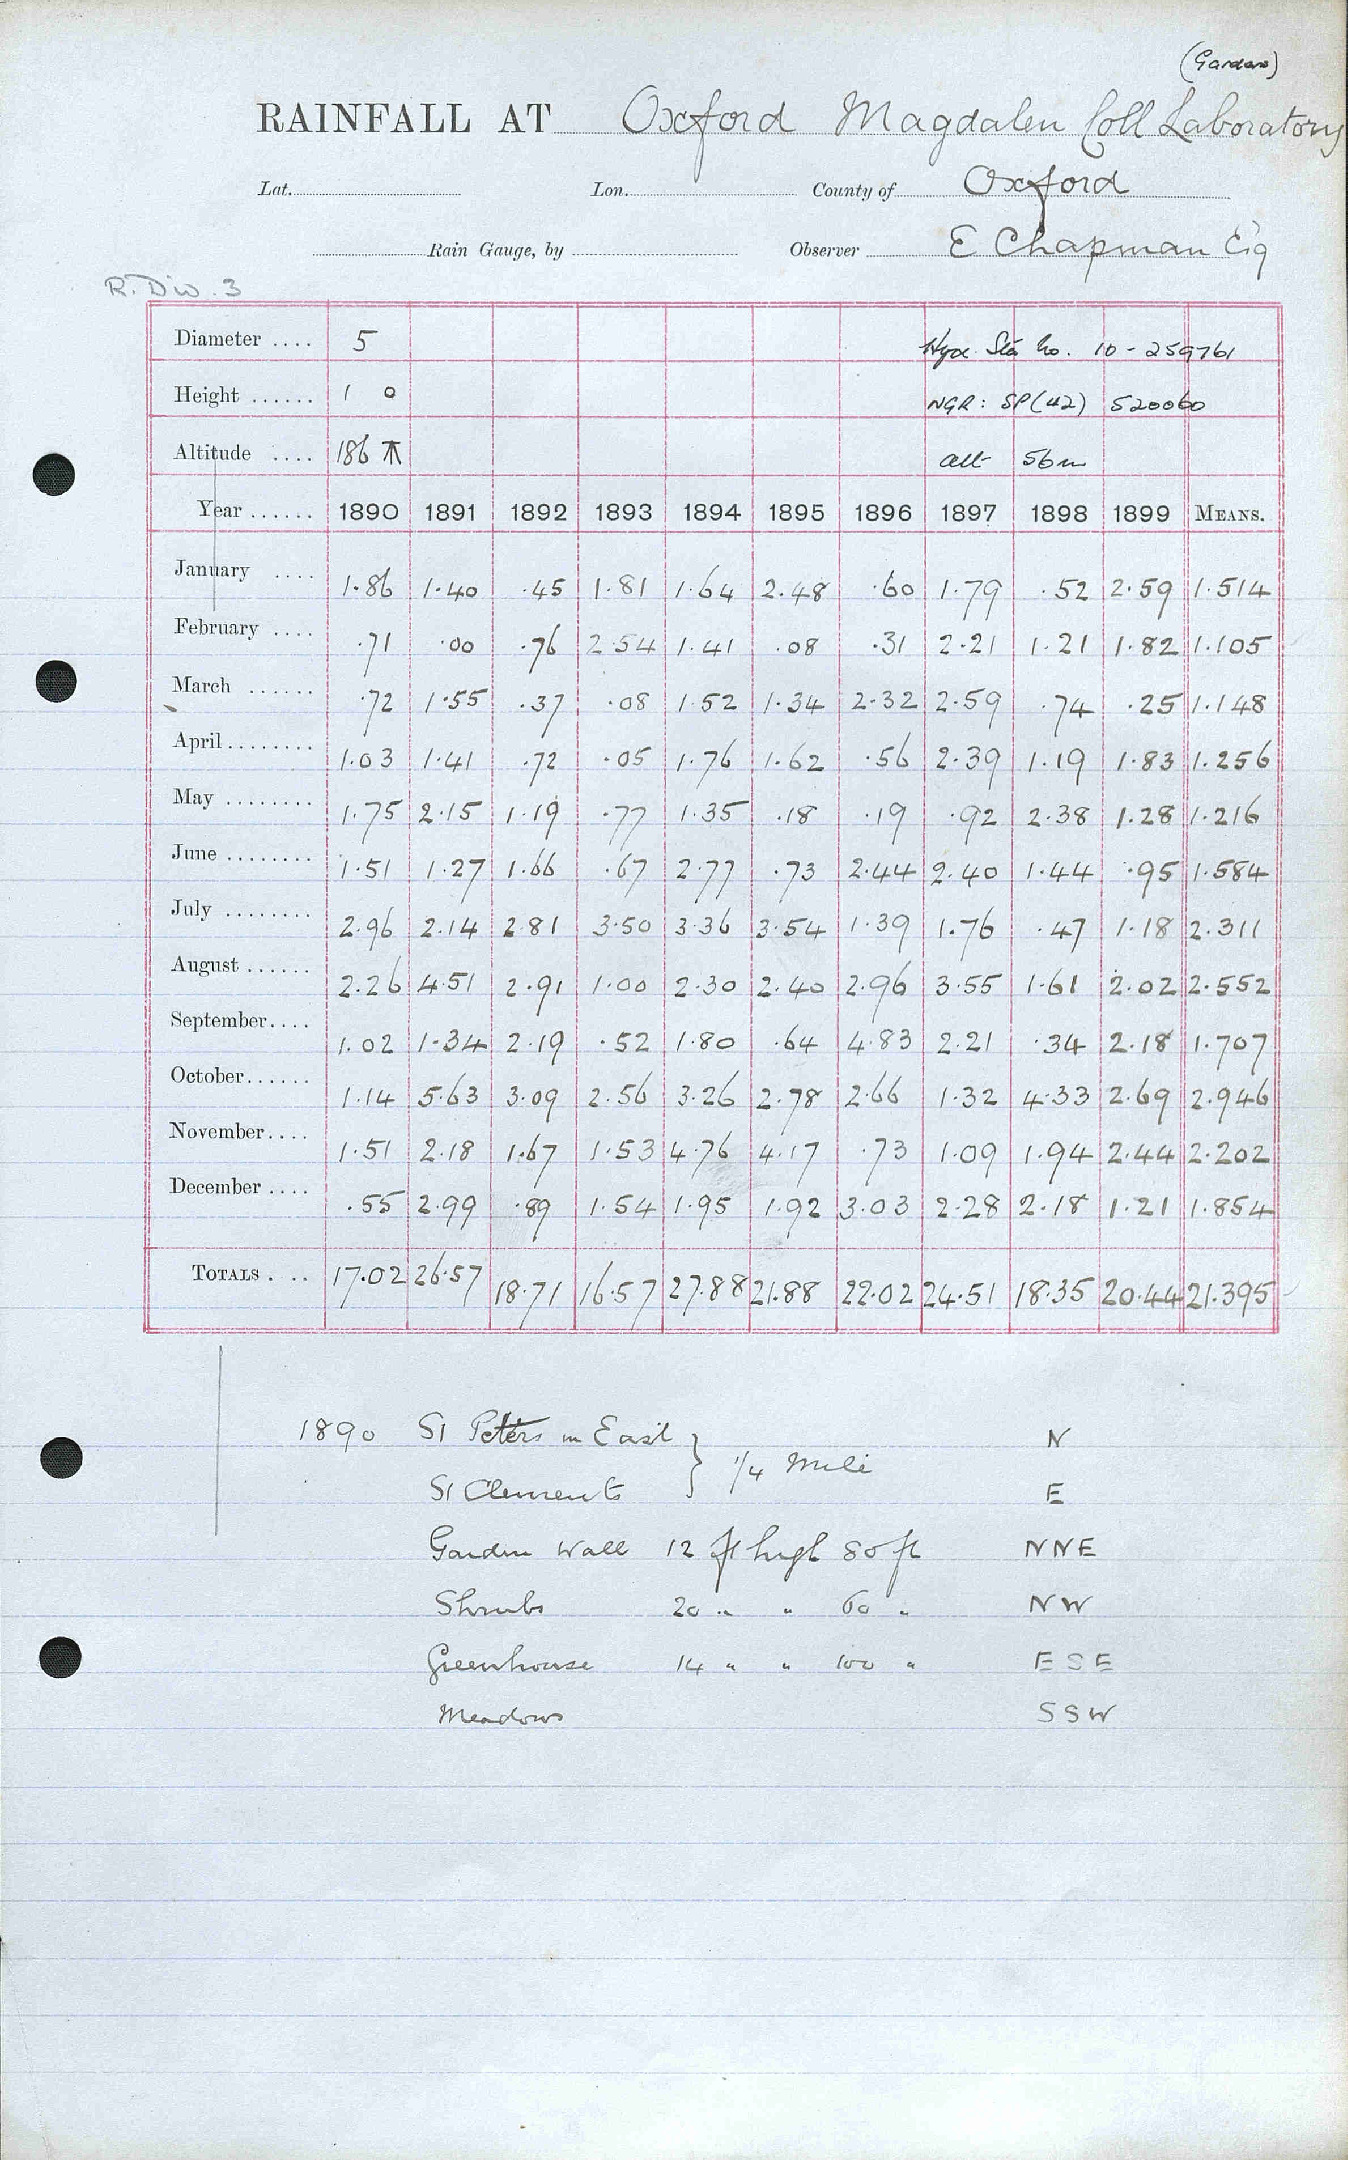 (Gardens)
RAINFALL AT Oxford Magdalen Coll Laboratory
Lat. Lon. County of Oxford
Rain Gauge, by Observer E Chapman Esq
R. Div. 3
Diameter .... 5 Sta No. 10 - 259761
Height ...... 1 0 NGR: SP(42) 520060
Altitude .... 186 alt 56m
Year ...... 1890 1891 1892 1893 1894 1895 1896 1897 1898 1899 MEANS.
January .... 1.86 1.40 .45 1.81 1.64 2.48 .60 1.79 .52 2.59 1.514
February .... .71 .00 .76 2.54 1.41 .08 .31 2.21 1.21 1.82 1.105
March ...... .72 1.55 .37 .08 1.52 1.34 2.32 2.59 .74 .25 1.148
April ........ 1.03 1.41 .72 .05 1.76 1.62 .56 2.39 1.19 1.83 1.256
May ........ 1.75 2.15 1.19 .77 1.35 .18 .19 .92 2.38 1.28 1.216
June ........ 1.51 1.27 1.66 .67 2.77 .73 2.44 2.40 1.44 .95 1.584
July ........ 2.96 2.14 2.81 3.50 3.36 3.54 1.39 1.76 .47 1.18 2.311
August ...... 2.26 4.51 2.91 1.00 2.30 2.40 2.96 3.55 1.61 2.02 2.552
September.... 1.02 1.34 2.19 .52 1.80 .64 4.83 2.21 .34 2.18 1.707
October...... 1.14 5.63 3.09 2.56 3.26 2.78 2.66 1.32 4.33 2.69 2.946
November.... 1.51 2.18 1.67 1.53 4.76 4.17 .73 1.09 1.94 2.44 2.202
December .... .55 2.99 .89 1.54 1.95 1.92 3.03 2.28 2.18 1.21 1.854
TOTALS . .. 17.02 26.57 18.71 16.57 27.88 21.88 22.02 24.51 18.35 20.44 21.395
1890 St Peters in East N
1/4 Mile
St Clements E
Garden Wall 12 ft high 80 ft NNE
Shrubs 20 " " 60 " NW
Greenhouse 14 " " 100 " ESE
Meadows SSW